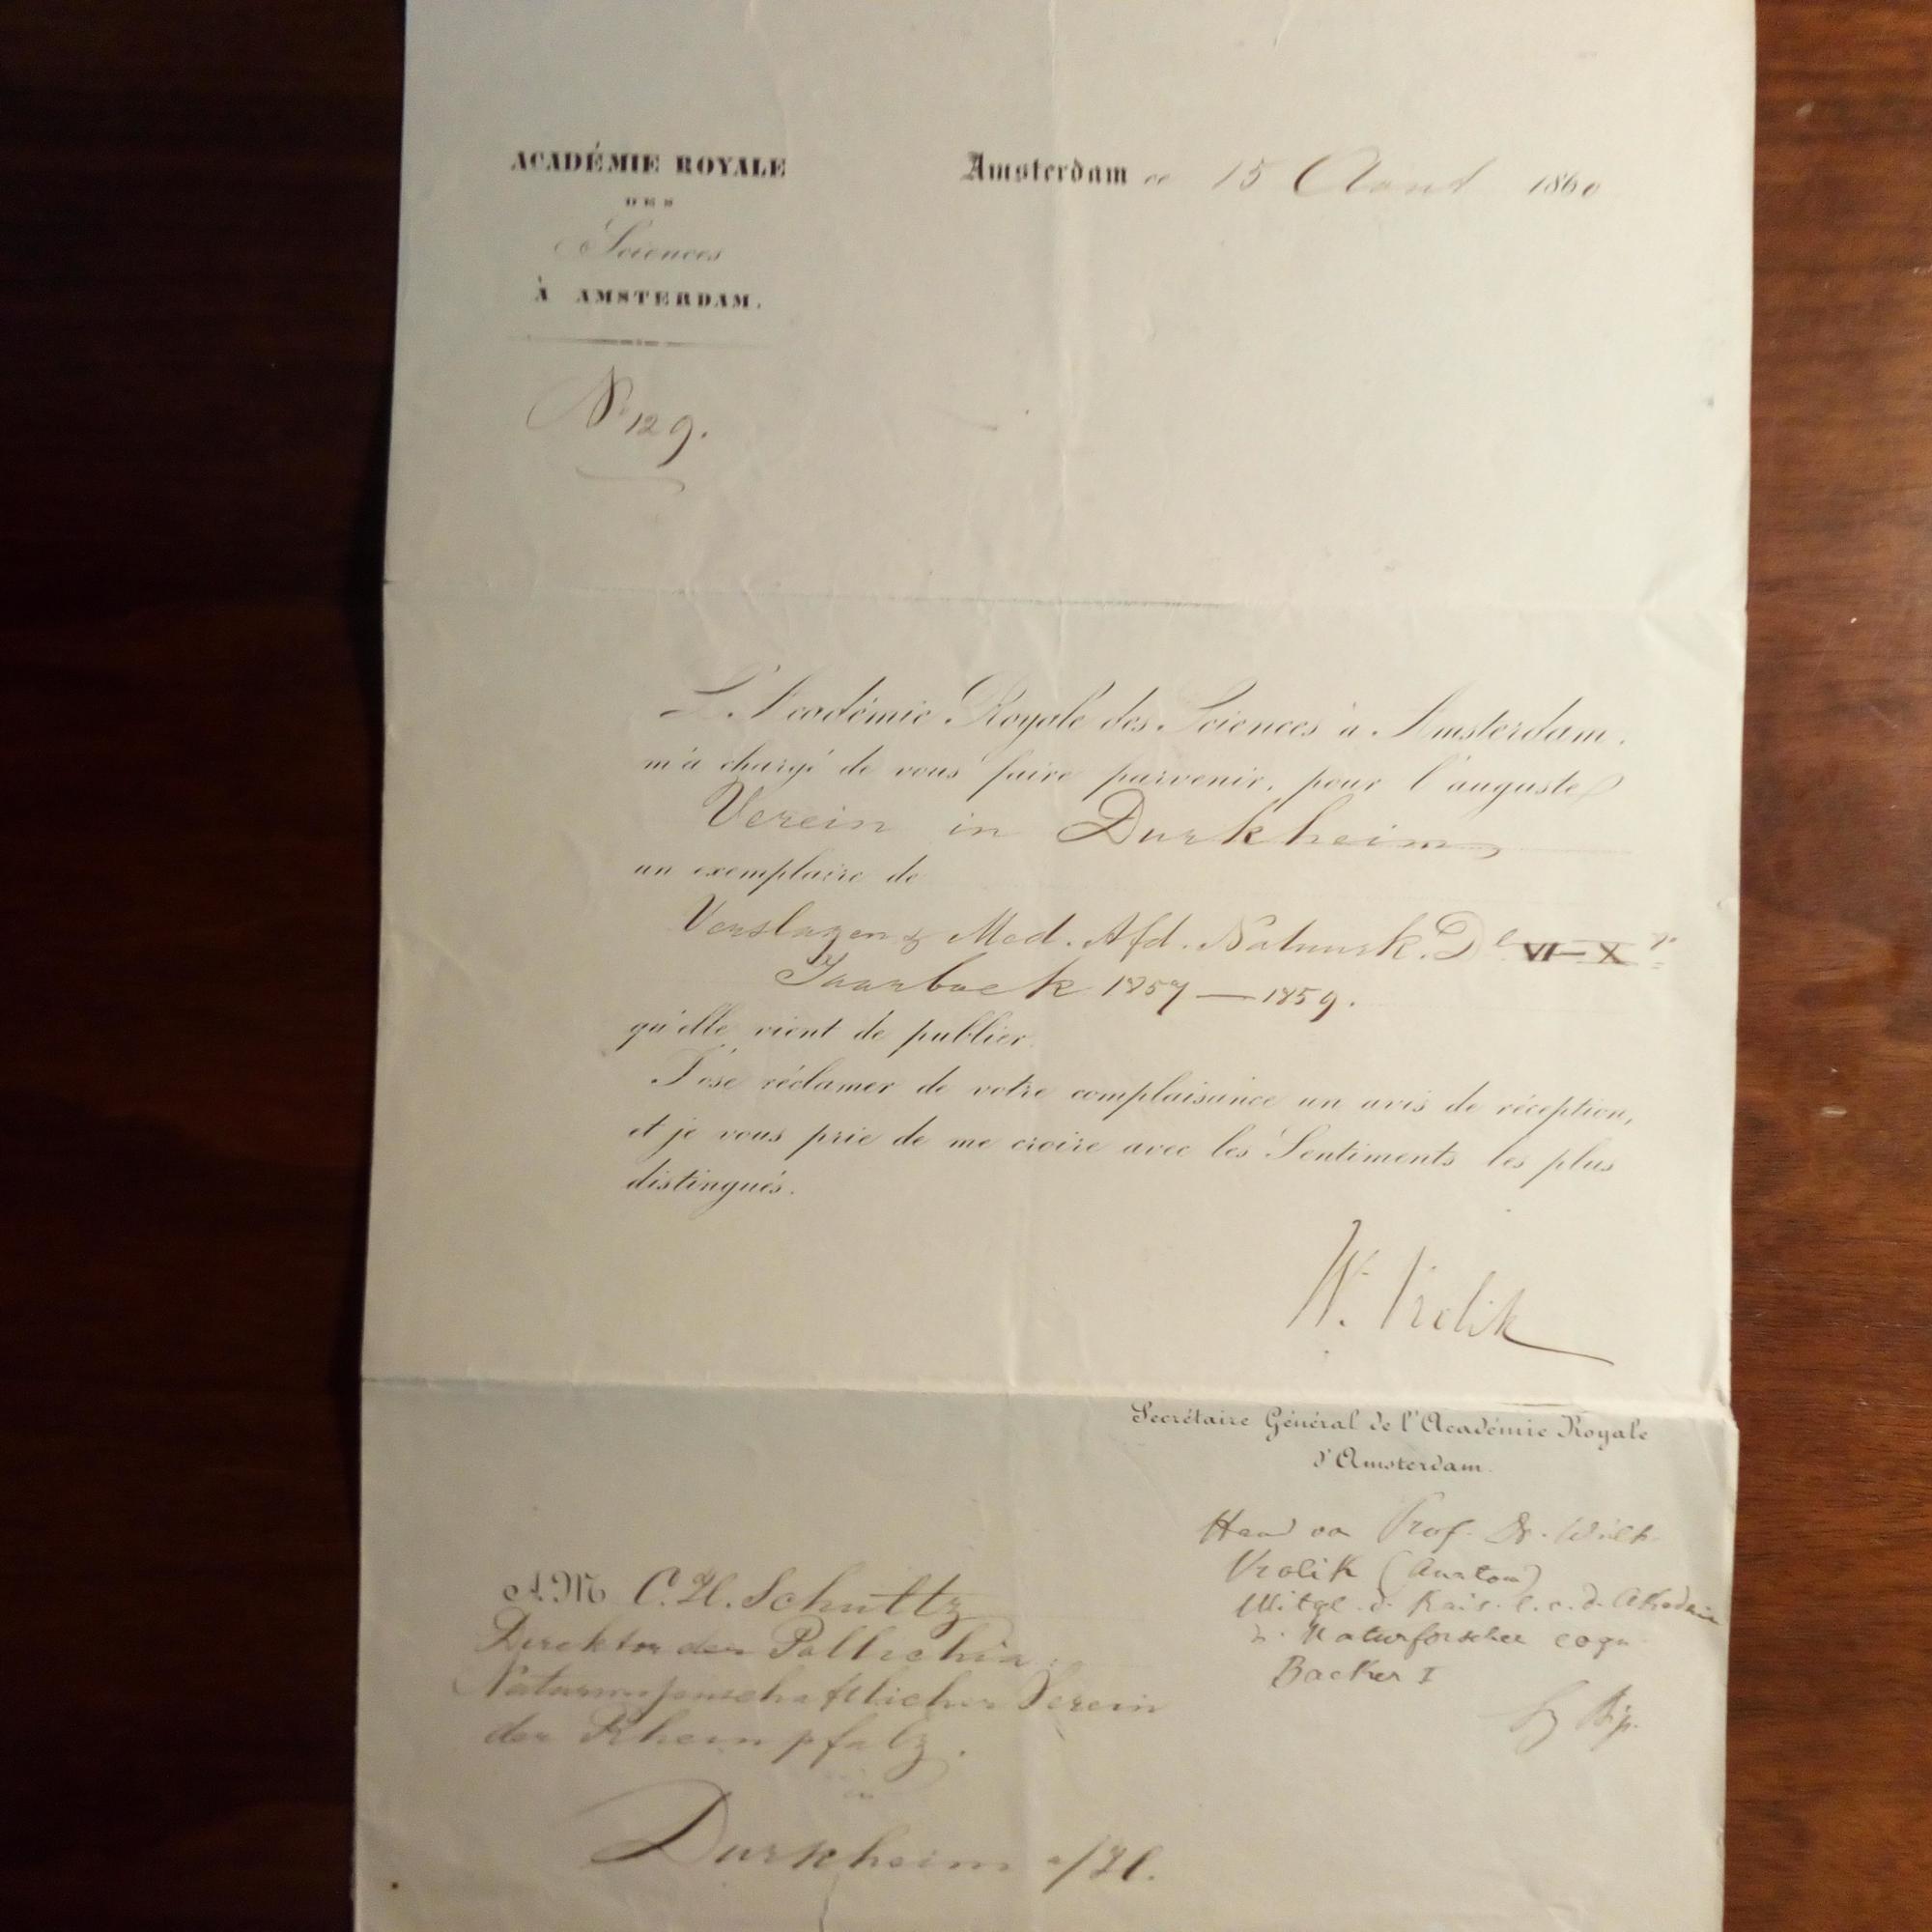 ACADÉMIE ROYALE
DES
Sciences
À AMSTERDAM.
Amsterdam ce 15 Aout 1860
No 129.
L'Académie Royale des Sciences à Amsterdam.
m'a chargé de vous faire parvenir, pour l'auguste
Verein in Durkheim
un exemplaire de
Verslagen & Med. Afd. Natuurk. Dl VI—X
Jaarboek 1857 — 1859.
qu'elle vient de publier.
J'ose réclamer de votre complaisance un avis de réception,
et je vous prie de me croire avec les Sentiments les plus
distingués.
W. Vrolik
Secrétaire Général de l'Académie Royale
d'Amsterdam.
Hand von Prof. Dr. Wilh.
Vrolik (Anatom)
Mitgl. d. Kais. L. C. d. Akademie
d. Naturforscher cogn.
Backer I
Sz Bip.
A.M. C.H. Schultz
Direktor der Pollichia
Naturwissenschaftlicher Verein
der Rheinpfalz.
in
Durkheim a/H.